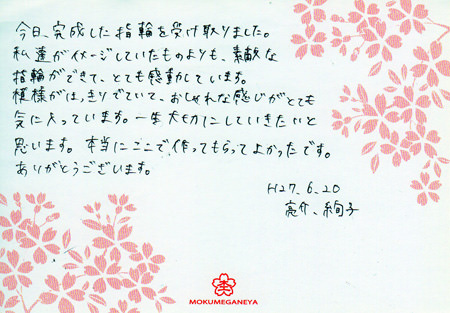 今日、完成した指輪を受け取りました。
私達がイメージしていたものよりも、素敵な
指輪ができて、とても感動しています。
模様がはっきりでていて、おしゃれな感じがとても
気に入っています。一生大切にしていきたいと
思います。本当にここで作ってもらってよかったです。
ありがとうございます。
H27.6.20
亮介、絢子
MOKUMEGANEYA